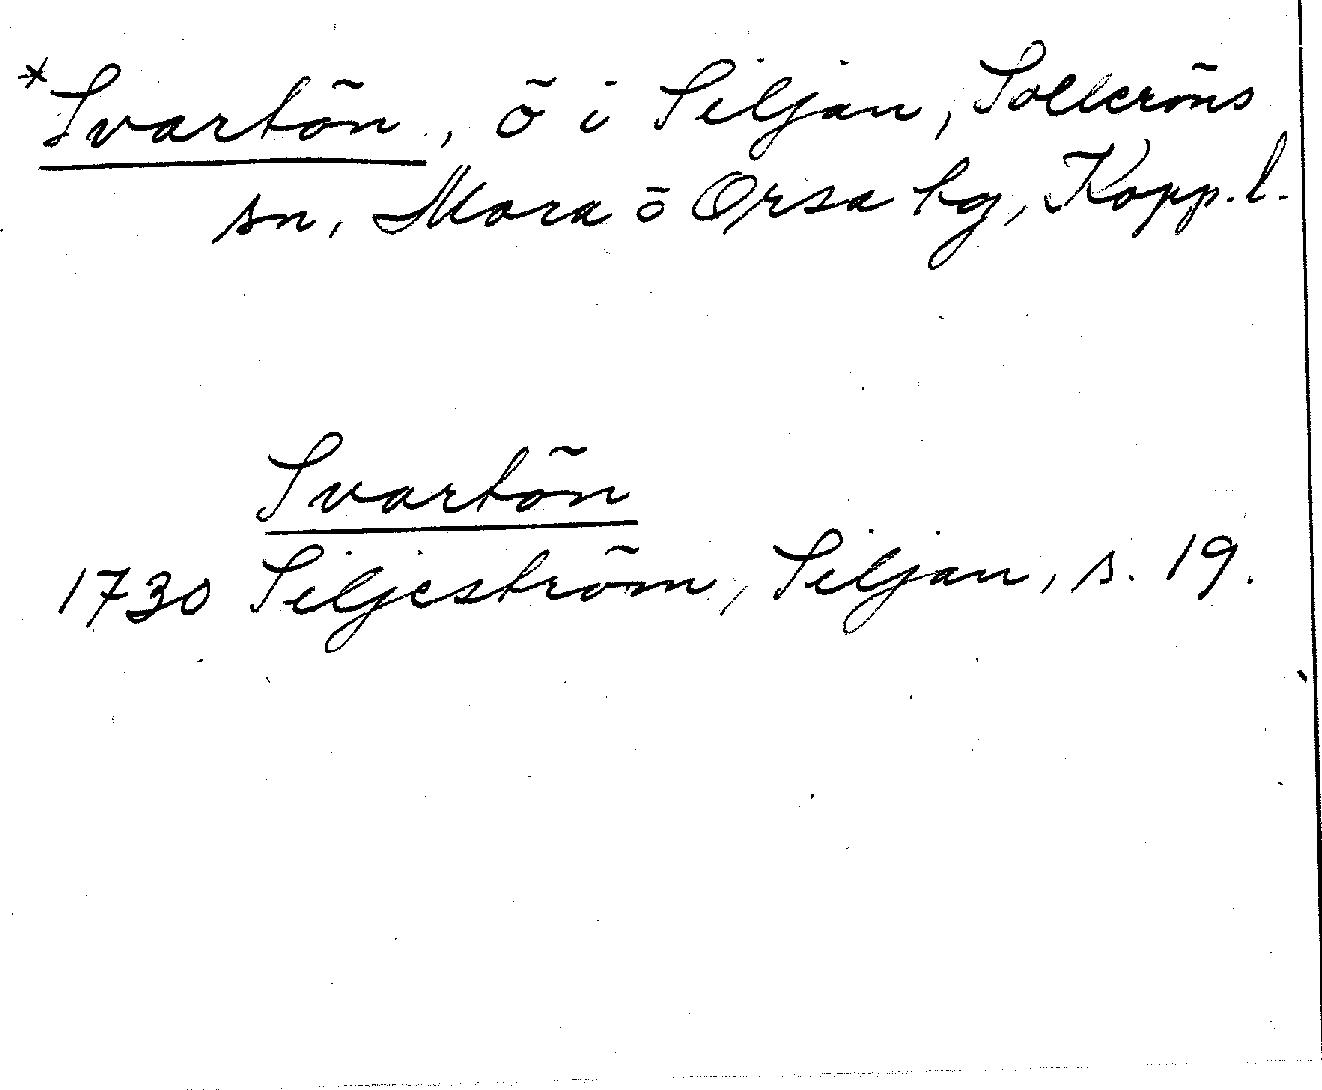 *Svartön, ö i Siljan, Solleröns
sn, Mora o Orsa hg, Kopp. l.
Svartön
1730 Siljeström, Siljan, s. 19.